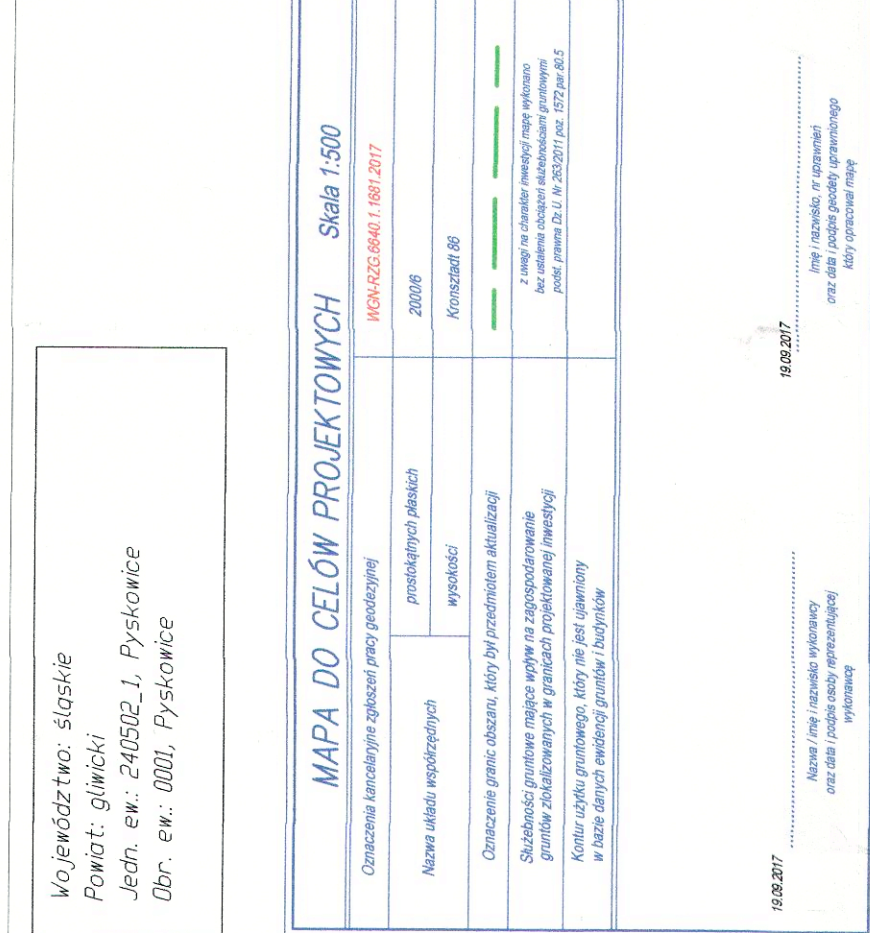 Województwo: śląskie
Powiat: gliwicki
Jedn. ew.: 240502_1, Pyskowice
Obr. ew.: 0001, Pyskowice
MAPA DO CELÓW PROJEKTOWYCH Skala 1:500
Oznaczenia kancelaryjne zgłoszeń pracy geodezyjnej
WGN-RZG.6640.1.1681.2017
Nazwa układu współrzędnych
prostokątnych płaskich
2000/6
wysokości
Kronsztadt 86
Oznaczenie granic obszaru, który był przedmiotem aktualizacji
Służebności gruntowe mające wpływ na zagospodarowanie
gruntów zlokalizowanych w granicach projektowanej inwestycji
z uwagi na charakter inwestycji mapę wykonano
bez ustalenia obciążeń służebnościami gruntowymi
podst. prawna Dz.U. Nr 263/2011 poz. 1572 par.80.5
Kontur użytku gruntowego, który nie jest ujawniony
w bazie danych ewidencji gruntów i budynków
19.09.2017
Nazwa / imię i nazwisko wykonawcy
oraz data i podpis osoby reprezentującej
wykonawcę
19.09.2017
Imię i nazwisko, nr uprawnień
oraz data i podpis geodety uprawnionego
który opracował mapę